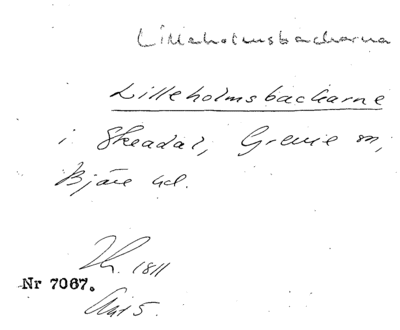 Lilleholmsbackarna
Lilleholmsbackarne
i Skeadal, Grevie sn,
Bjäre hd.
1811
Nr 7067.